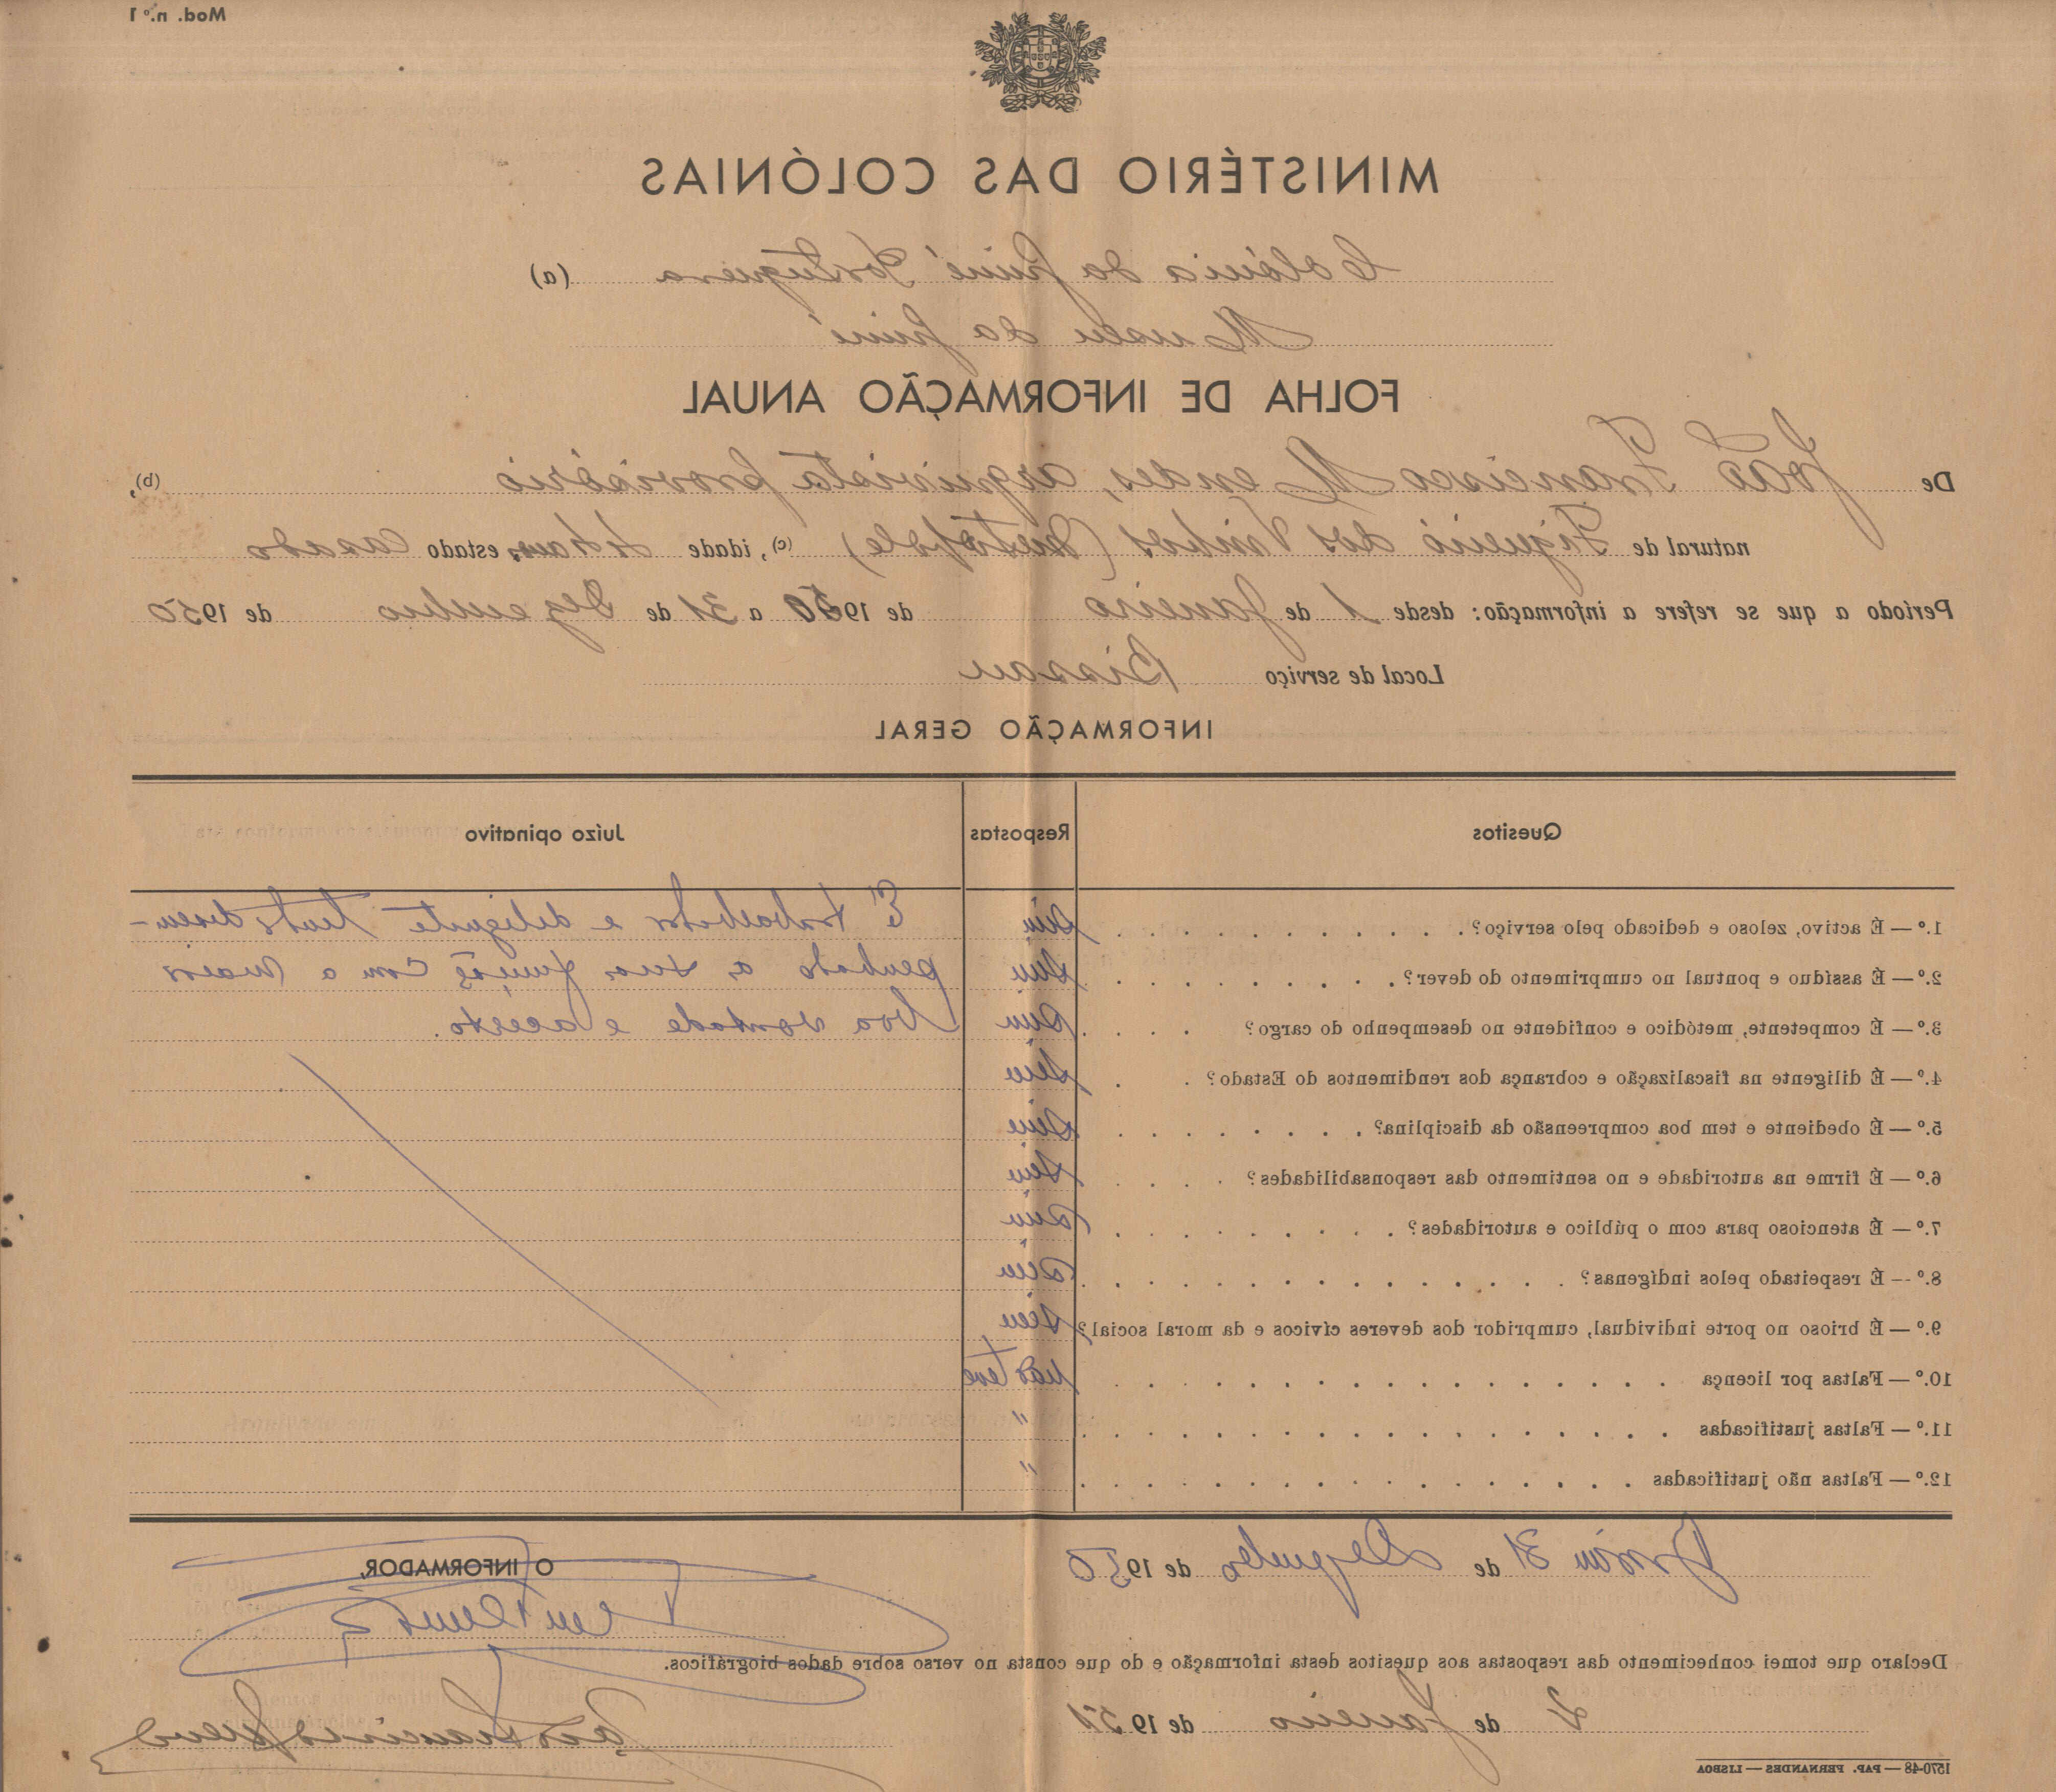 Mod. n.º 1
MINISTÉRIO DAS COLÓNIAS
Colónia da Guiné Portuguesa (a)
Museu da Guiné
FOLHA DE INFORMAÇÃO ANUAL
De João Francisco Mendes, arquivista provisório (b),
natural de Figueiró dos Vinhos (Metrópole) (c), idade anos, estado casado
Período a que se refere a informação: desde 1 de Janeiro de 1950 a 31 de Dezembro de 1950
Local de serviço Bissau
INFORMAÇÃO GERAL
Quesitos Respostas Juízo opinativo
1.º — É activo, zeloso e dedicado pelo serviço? Sim É trabalhador e diligente tendo desem-
2.º — É assíduo e pontual no cumprimento do dever? Sim penhado a sua função com a maior
3.º — É competente, metódico e confidente no desempenho do cargo? Sim boa vontade e acerto.
4.º — É diligente na fiscalização e cobrança dos rendimentos do Estado? Sim
5.º — É obediente e tem boa compreensão da disciplina? Sim
6.º — É firme na autoridade e no sentimento das responsabilidades? Sim
7.º — É atencioso para com o público e autoridades? Sim
8.º — É respeitado pelos indígenas? Sim
9.º — É brioso no porte individual, cumpridor dos deveres cívicos e da moral social? Sim
10.º — Faltas por licença não teve
11.º — Faltas justificadas "
12.º — Faltas não justificadas "
Bissau 31 de Dezembro de 1950
O INFORMADOR,
Declaro que tomei conhecimento das respostas aos quesitos desta informação e do que consta no verso sobre dados biográficos.
2 de Janeiro de 1951
João Francisco Mendes
1570-48 — PAP. FERNANDES — LISBOA